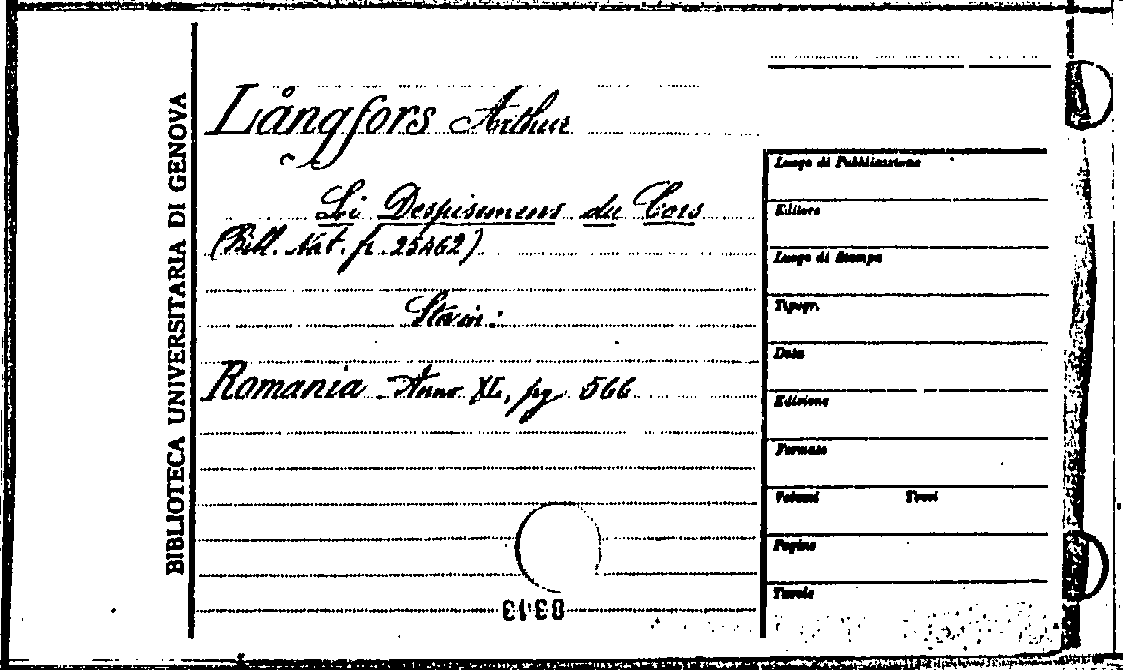 BIBLIOTECA UNIVERSITARIA DI GENOVA
Långfors Arthur
Li Despisemens du Cors
(Bibl. Nat. fr. 25462)
Sta in:
Romania Anno XL, pg 566
0313
Luogo di Pubblicazione
Editore
Luogo di Stampa
Tipogr.
Data
Edizione
Formato
Volumi Tomi
Pagine
Tavole